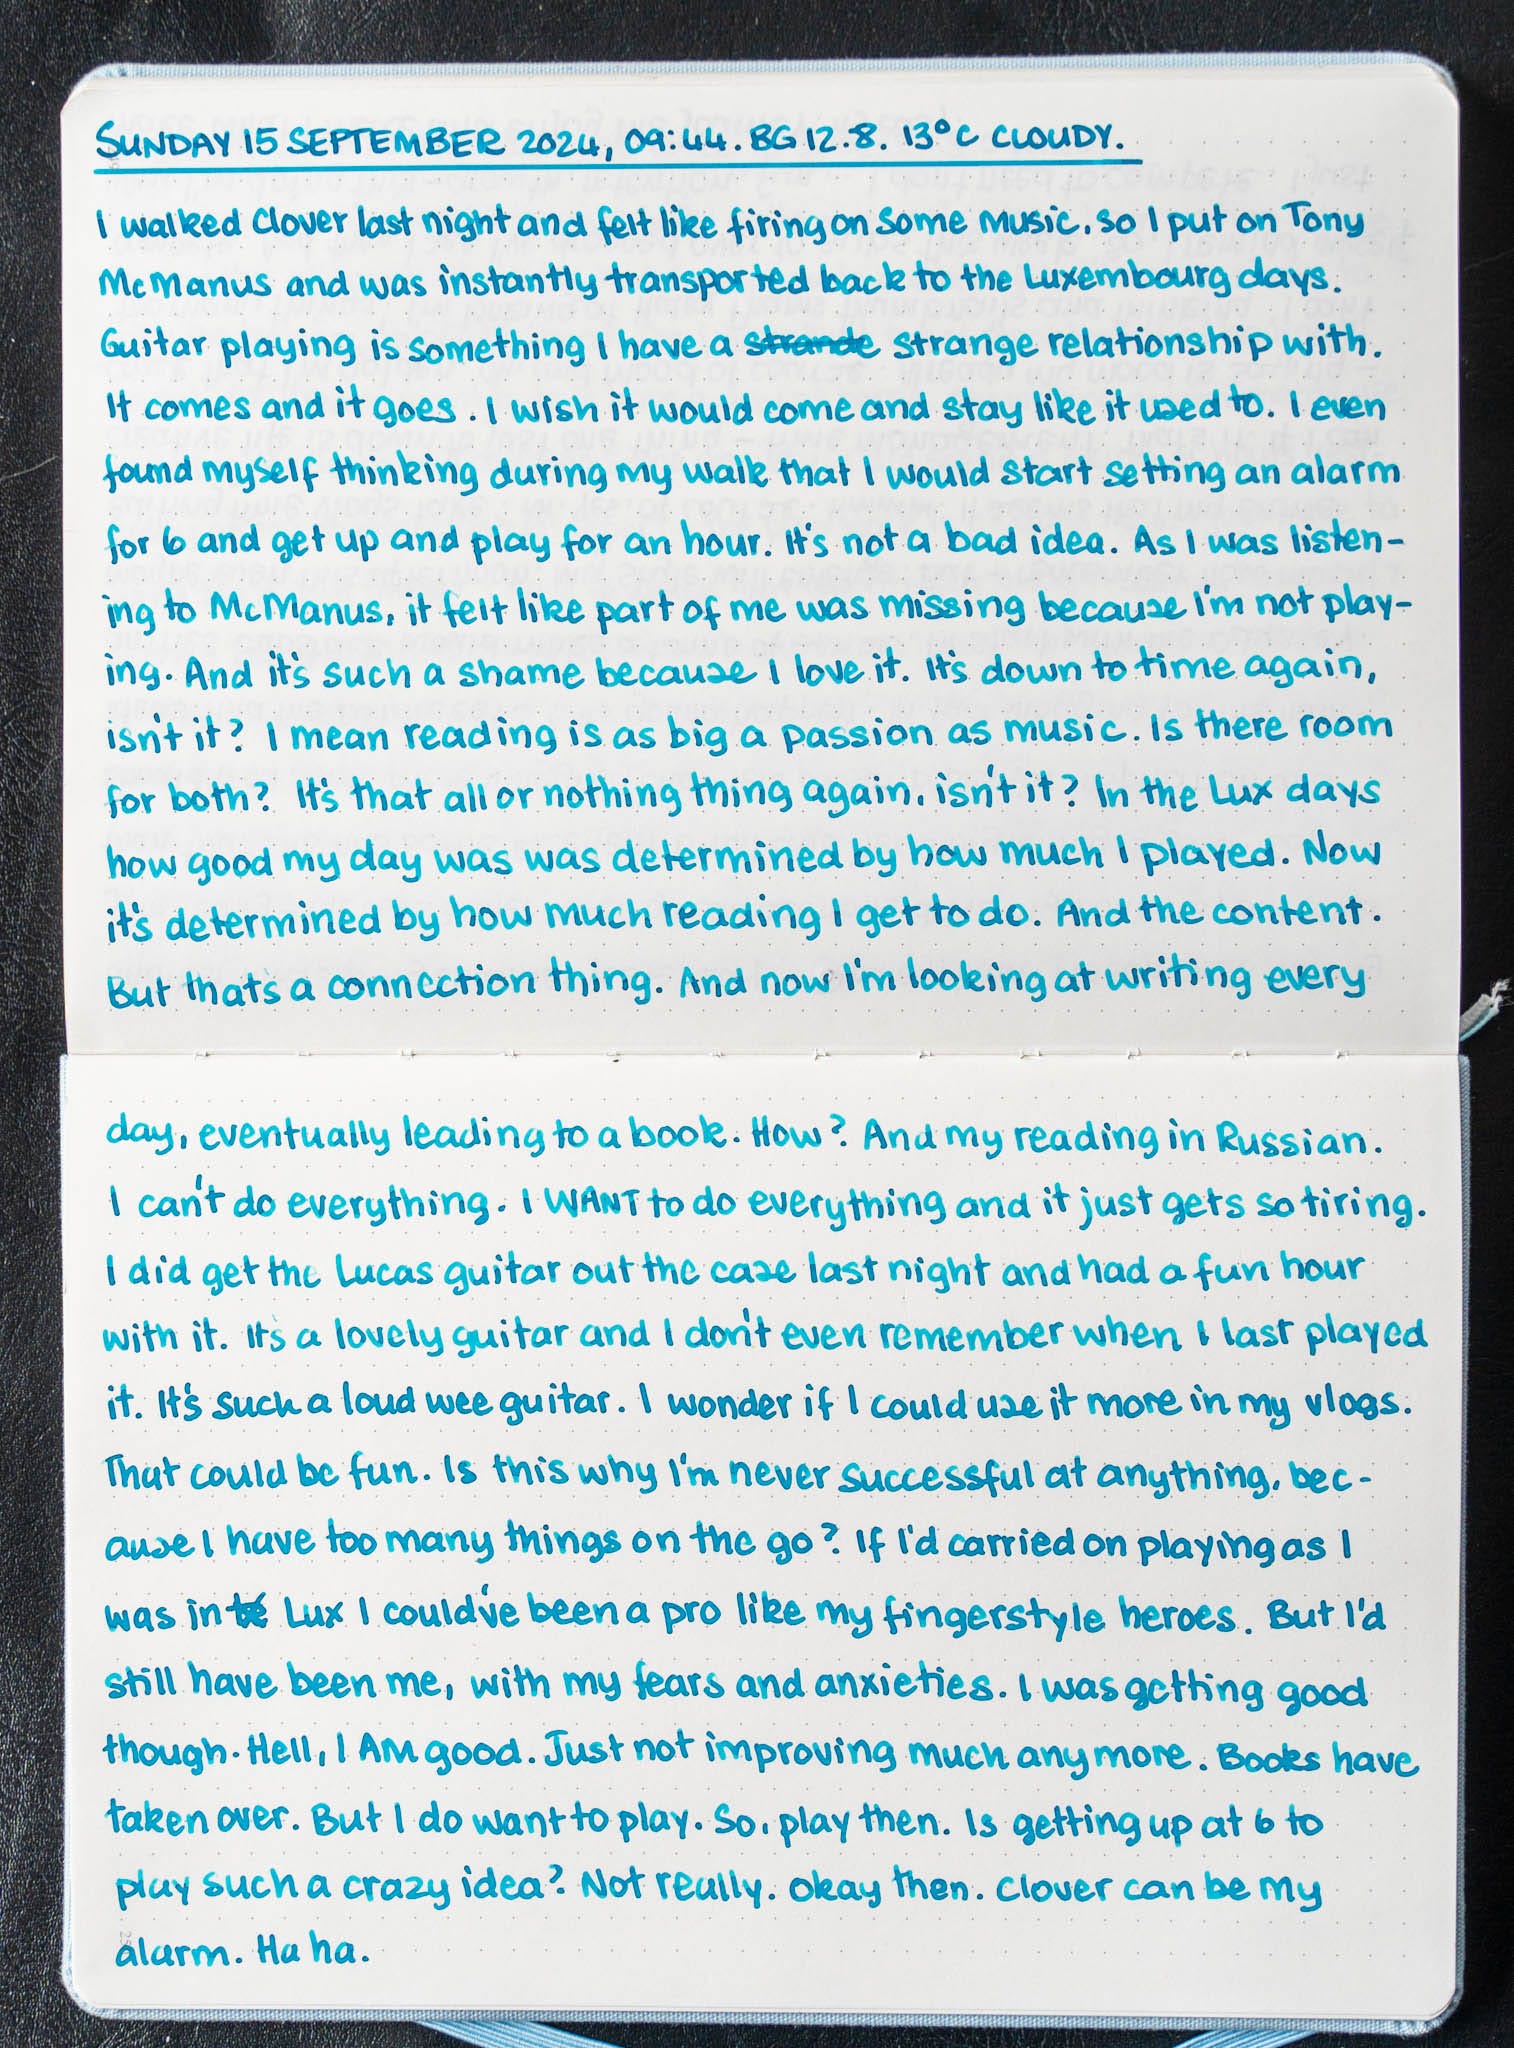 SUNDAY 15 SEPTEMBER 2024, 09:44. BG 12.8. 13°C CLOUDY.
I walked Clover last night and felt like firing on some music, so I put on Tony
McManus and was instantly transported back to the Luxembourg days.
Guitar playing is something I have a strande strange relationship with.
It comes and it goes. I wish it would come and stay like it used to. I even
found myself thinking during my walk that I would start setting an alarm
for 6 and get up and play for an hour. It's not a bad idea. As I was listen-
ing to McManus, it felt like part of me was missing because I'm not play-
ing. And it's such a shame because I love it. It's down to time again,
isn't it? I mean reading is as big a passion as music. Is there room
for both? It's that all or nothing thing again, isn't it? In the Lux days
how good my day was was determined by how much I played. Now
it's determined by how much reading I get to do. And the content.
But that's a connection thing. And now I'm looking at writing every
day, eventually leading to a book. How? And my reading in Russian.
I can't do everything. I WANT to do everything and it just gets so tiring.
I did get the Lucas guitar out the case last night and had a fun hour
with it. It's a lovely guitar and I don't even remember when I last played
it. It's such a loud wee guitar. I wonder if I could use it more in my vlogs.
That could be fun. Is this why I'm never successful at anything, bec-
ause I have too many things on the go? If I'd carried on playing as I
was in Lux I could've been a pro like my fingerstyle heroes. But I'd
still have been me, with my fears and anxieties. I was getting good
though. Hell, I AM good. Just not improving much anymore. Books have
taken over. But I do want to play. So, play then. Is getting up at 6 to
play such a crazy idea? Not really. Okay then. Clover can be my
alarm. Ha ha.